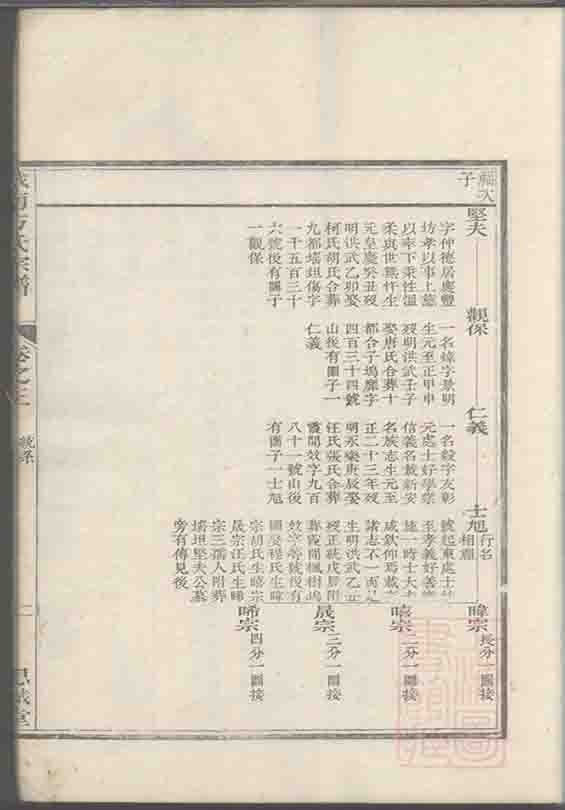 子
堅夫
字仲德居處豐
坊孝以事上慈
以奉下秉性溫
柔與世無忤生
元皇慶癸丑歿
明洪武乙卯娶
柯氏胡氏合葬
九都塘坦傷字
一千五百三十
六號後有圖子
一觀保
觀保
一名緯字景明
生元至正甲申
歿明洪武壬子
娶唐氏合葬十
都合子塢靡字
四百三十四號
山後有圖子一
仁義
仁義
一名毅字友彰
元處士好學崇
信義名載新安
名族志生元至
正二十三年歿
明永樂庚辰娶
汪氏張氏合葬
霞閒效字九百
八十一號山後
有圖子一士旭
士旭
行名
相
號起東處士
至孝義好善
施一時士大夫
咸欽仰焉載
諸志不一而足
生明洪武乙
歿正統戊
葬霞閒楓樹塢
效字等號後有
圖娶程氏生暐
宗胡氏生暿宗
晟宗汪氏生晞
宗三孺人附葬
塘坦堅夫公墓
旁有傳見後
暐宗
長分一圖接
暿宗
二分一圖接
晟宗
三分一圖接
晞宗
四分一圖接
方氏宗譜
卷之三
統系
二